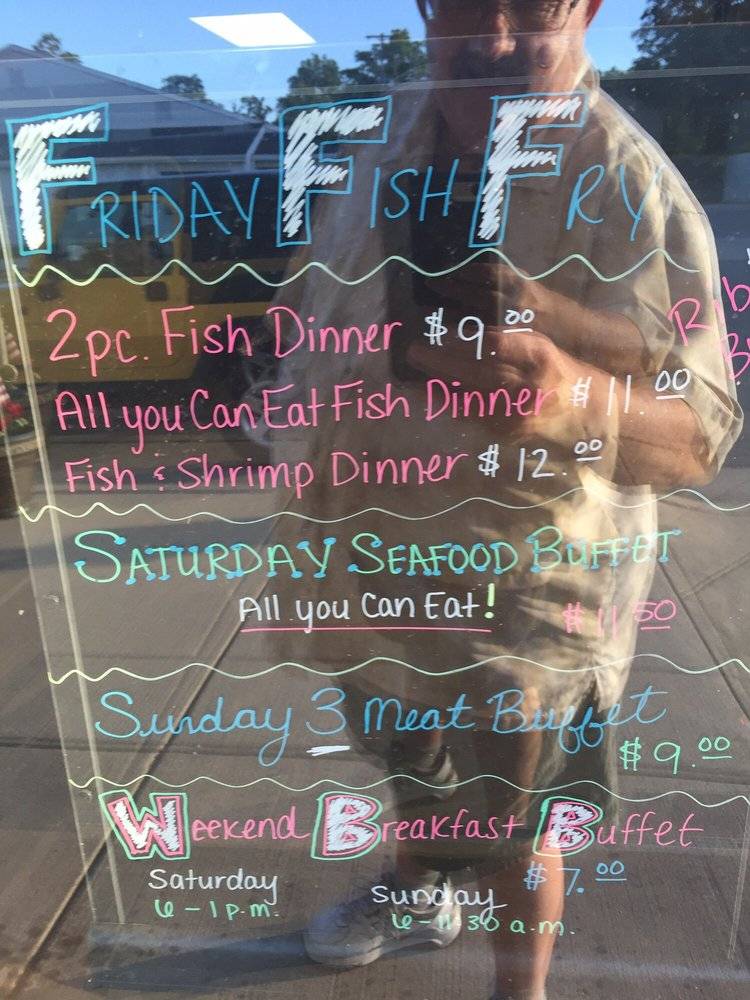 Friday Fish Fry
2pc. Fish Dinner $9.00
All you Can Eat Fish Dinner $11.00
Fish & Shrimp Dinner $12.00
Saturday Seafood Buffet
All you Can Eat!
$11.50
Sunday 3 Meat Buffet
$9.00
Weekend Breakfast Buffet
$7.00
Saturday
6-1 p.m.
Sunday
6-11:30 a.m.